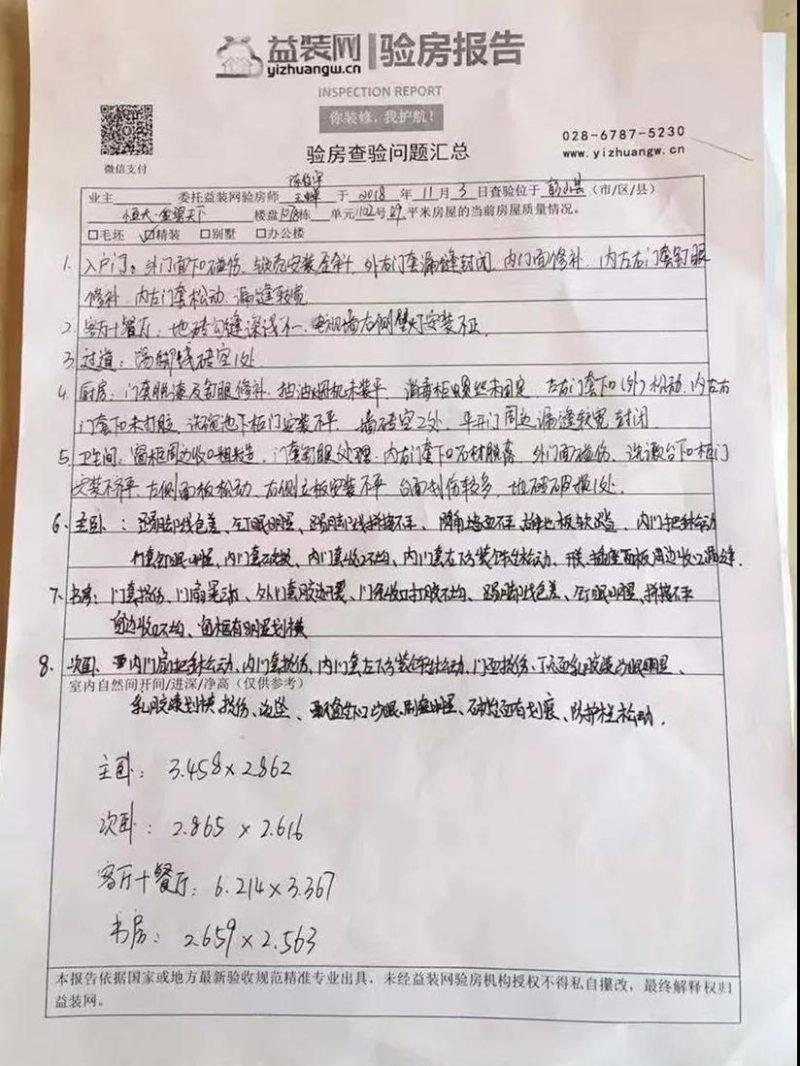 益装网 验房报告
yizhuangw.cn
INSPECTION REPORT
你装修,我护航!
028-6787-5230
www.yizhuangw.cn
微信支付
验房查验问题汇总
业主 委托益装网验房师 于 2018 年 11 月 3 日查验位于 彭山县 (市/区/县)
恒大·金碧天下 楼盘 栋 单元1102号89平米房屋的当前房屋质量情况。
□毛坯 ☑精装 □别墅 □办公楼
1. 入户门:外门面下口磕伤、锁壳安装歪斜 外右门套漏缝封闭、内门面修补、内左右门套钉眼
修补、内右门套松动、漏缝较宽
2. 客厅+餐厅:地砖勾缝深浅不一、电视墙右侧壁灯安装不正
3. 过道:踢脚线砖空1处
4. 厨房:门套脱漆及钉眼修补、抽油烟机未装平、消毒柜螺丝未固定、左右门套下口(外)松动、内左右
门套下口未打胶、洗碗池下柜门安装不平、墙砖空2处、平开门周边漏缝较宽 封闭
5. 卫生间:窗框周边收口粗糙、门套钉眼处理、内右门套下口石材脱落 外门面磕伤、洗漱台下口柜门
安装不平、左侧面板松动、右侧立板安装不平 台面划伤较多、地砖破损1处
6. 主卧:踢脚线色差、钉眼明显、踢脚线拼接不平、阴角墙面不正、 地板软踏、内门把手松动
门套钉眼明显、内门套破损、内门套收口不均、内门套左下方装饰条松动、开关、插座面板周边收口漏缝
7. 书房:门套损伤、门扇晃动、外门套胶边开裂、门套收口打胶不均、踢脚线色差、钉眼明显、拼接不平
窗边收口不均、窗框有明显划痕
8. 次卧、内门扇把手松动、内门套损伤、内门套左下方装饰条松动、门面损伤、顶面乳胶漆 明显、
室内自然间开间/进深/净高(仅供参考)
乳胶漆划痕 损伤、 护栏松动.
主卧:3.458×2.862
次卧:2.865×2.616
客厅+餐厅:6.214×3.367
书房:2.659×2.563
本报告依据国家或地方最新验收规范精准专业出具,未经益装网验房机构授权不得私自撰改,最终解释权归
益装网。